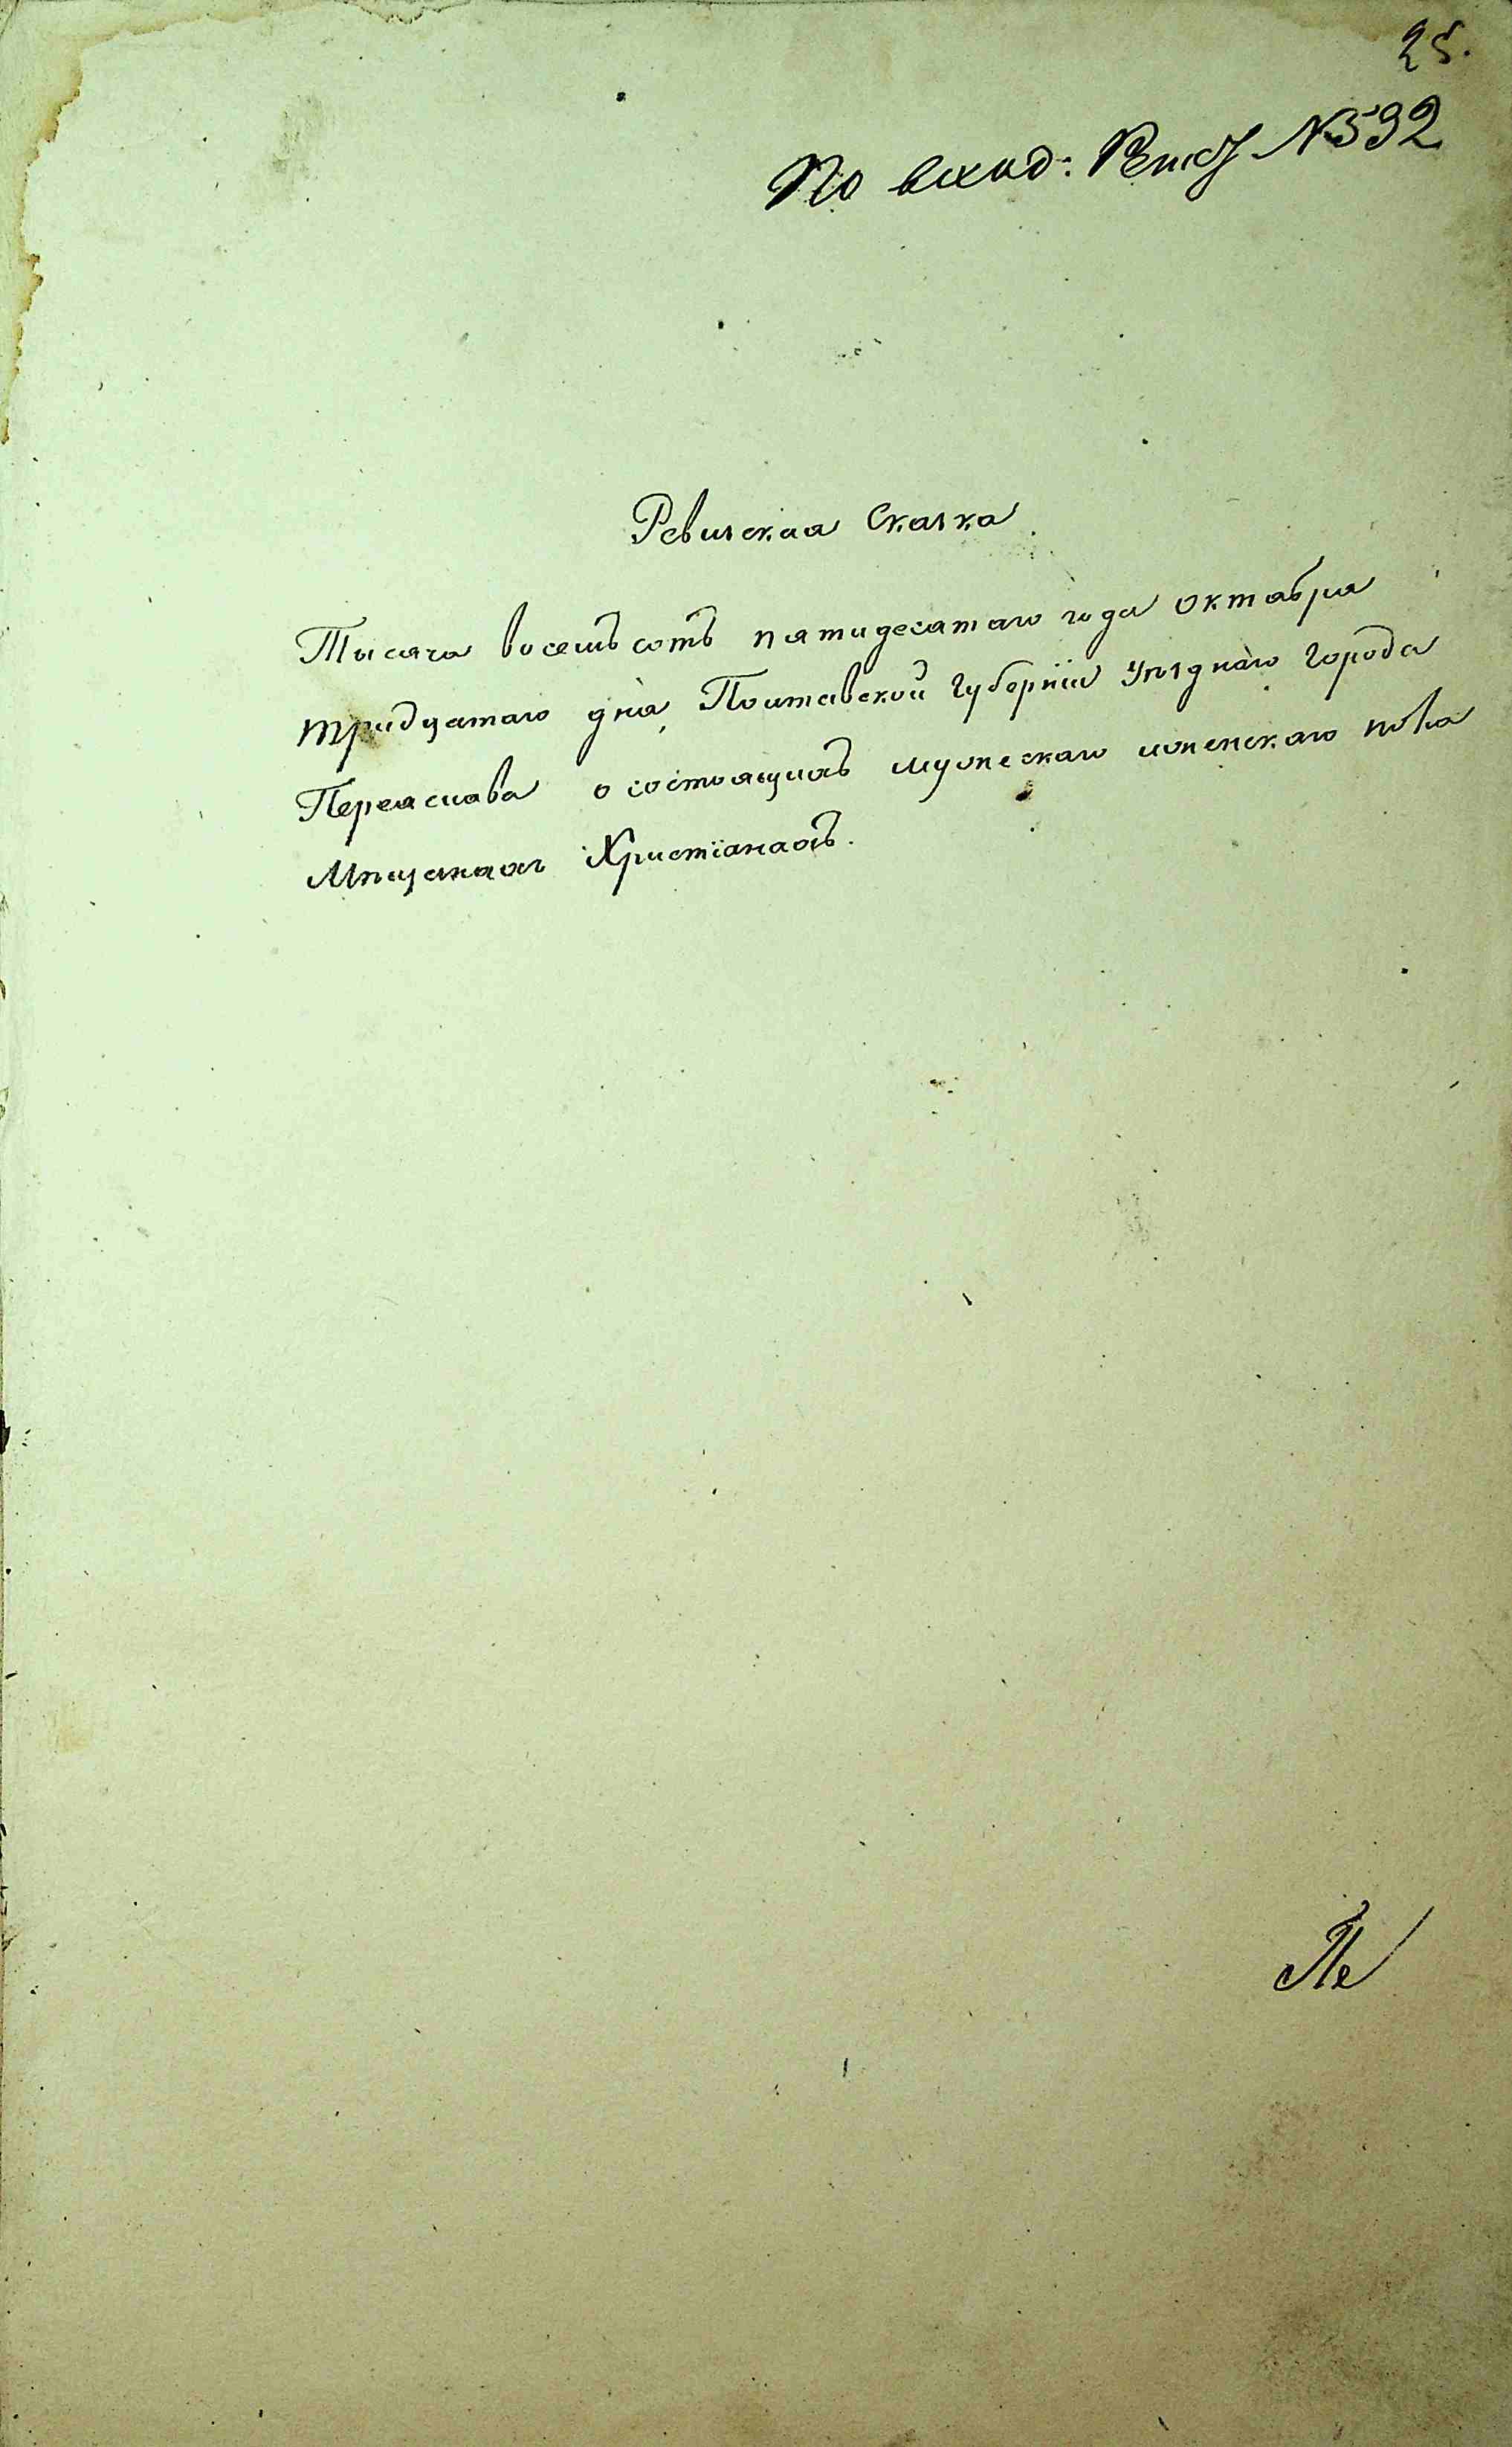 25.
По вход: Реист №592
Ревизская Сказка
Тысяча восемъ сотъ пятидесятаго года октября
тридцатаго дня, Полтавской Губерніи Уѣзднаго города
Переяслава о состоящихъ мужескаго иженскаго пола
Мѣщанахъ Христіанахъ.
Пе